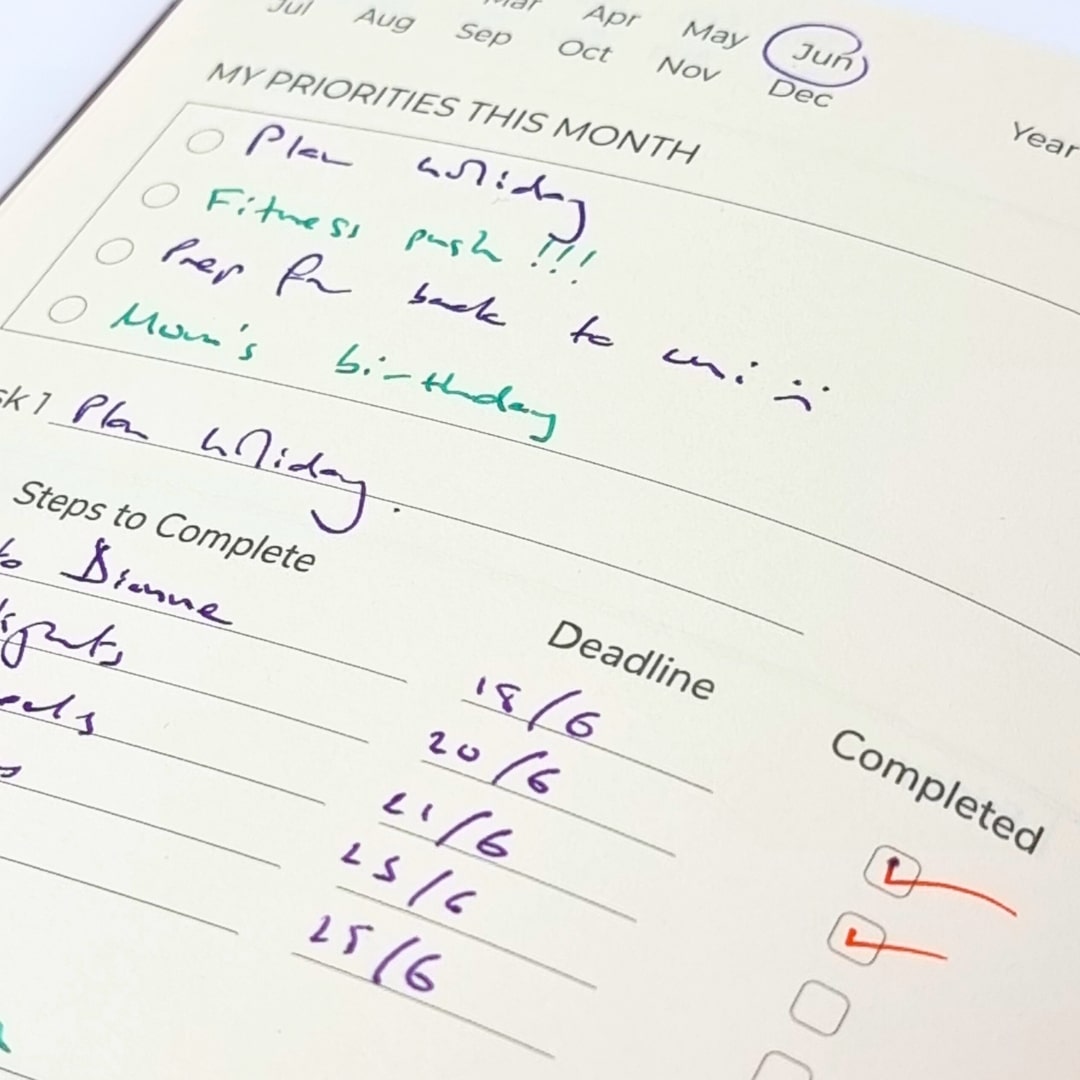 Apr May Jun
Jul Aug Sep Oct Nov Dec
Year
MY PRIORITIES THIS MONTH
Plan holiday
Fitness push !!!
Prep for back to uni :(
Mom's birthday
sk 1 Plan holiday.
Steps to Complete Deadline Completed
to Dianne 18/6
20/6
21/6
25/6
25/6